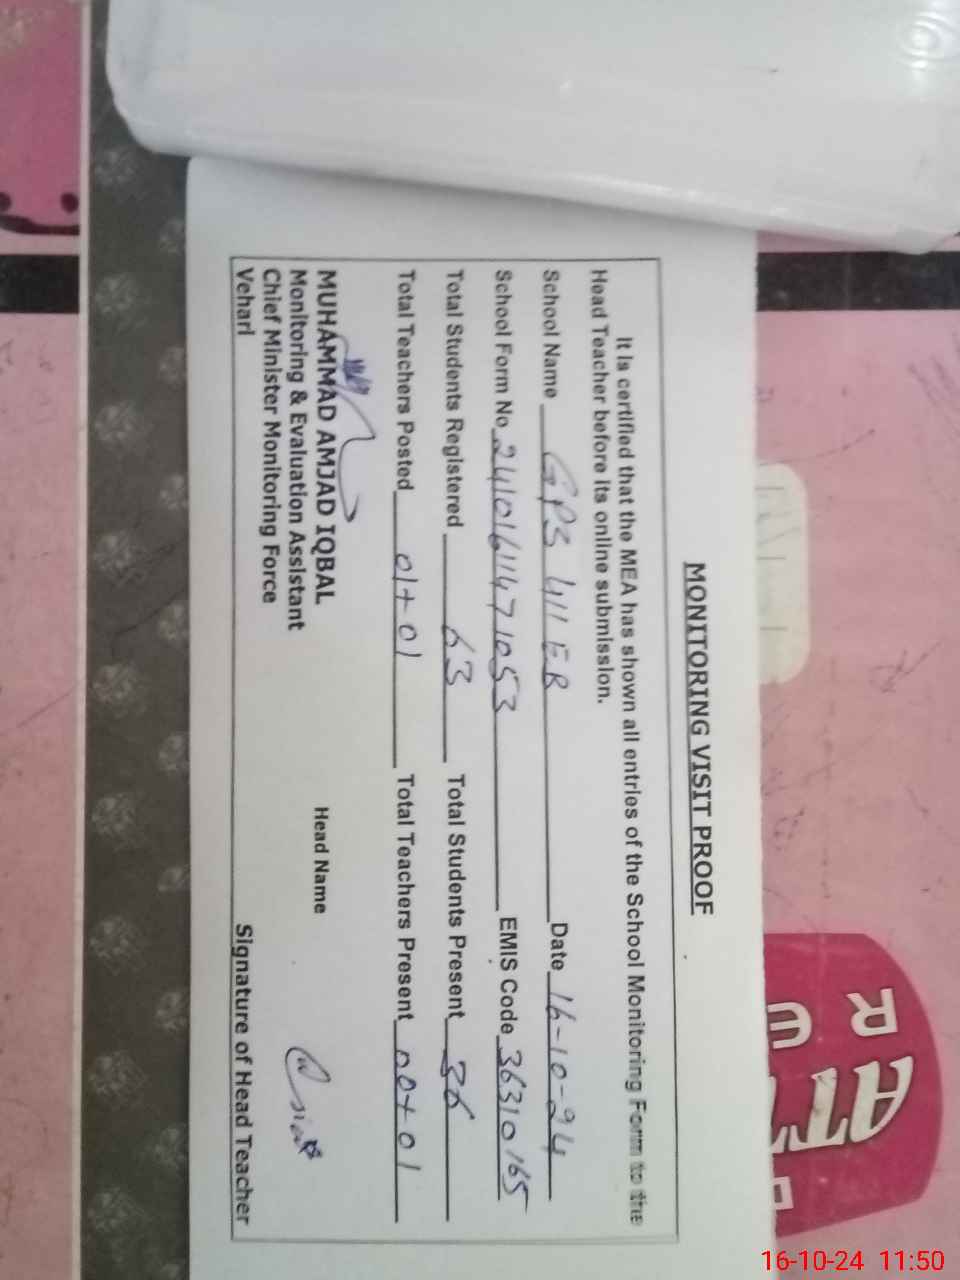 MONITORING VISIT PROOF
It is certified that the MEA has shown all entries of the School Monitoring Form to the
Head Teacher before its online submission.
School Name GPS 411 EB Date 16-10-24
School Form No 2410161147 1053 EMIS Code 36310165
Total Students Registered 63 Total Students Present 36
Total Teachers Posted 01+01 Total Teachers Present 00+01
MUHAMMAD AMJAD IQBAL Head Name
Monitoring & Evaluation Assistant
Chief Minister Monitoring Force
Vehari Signature of Head Teacher
16-10-24 11:50